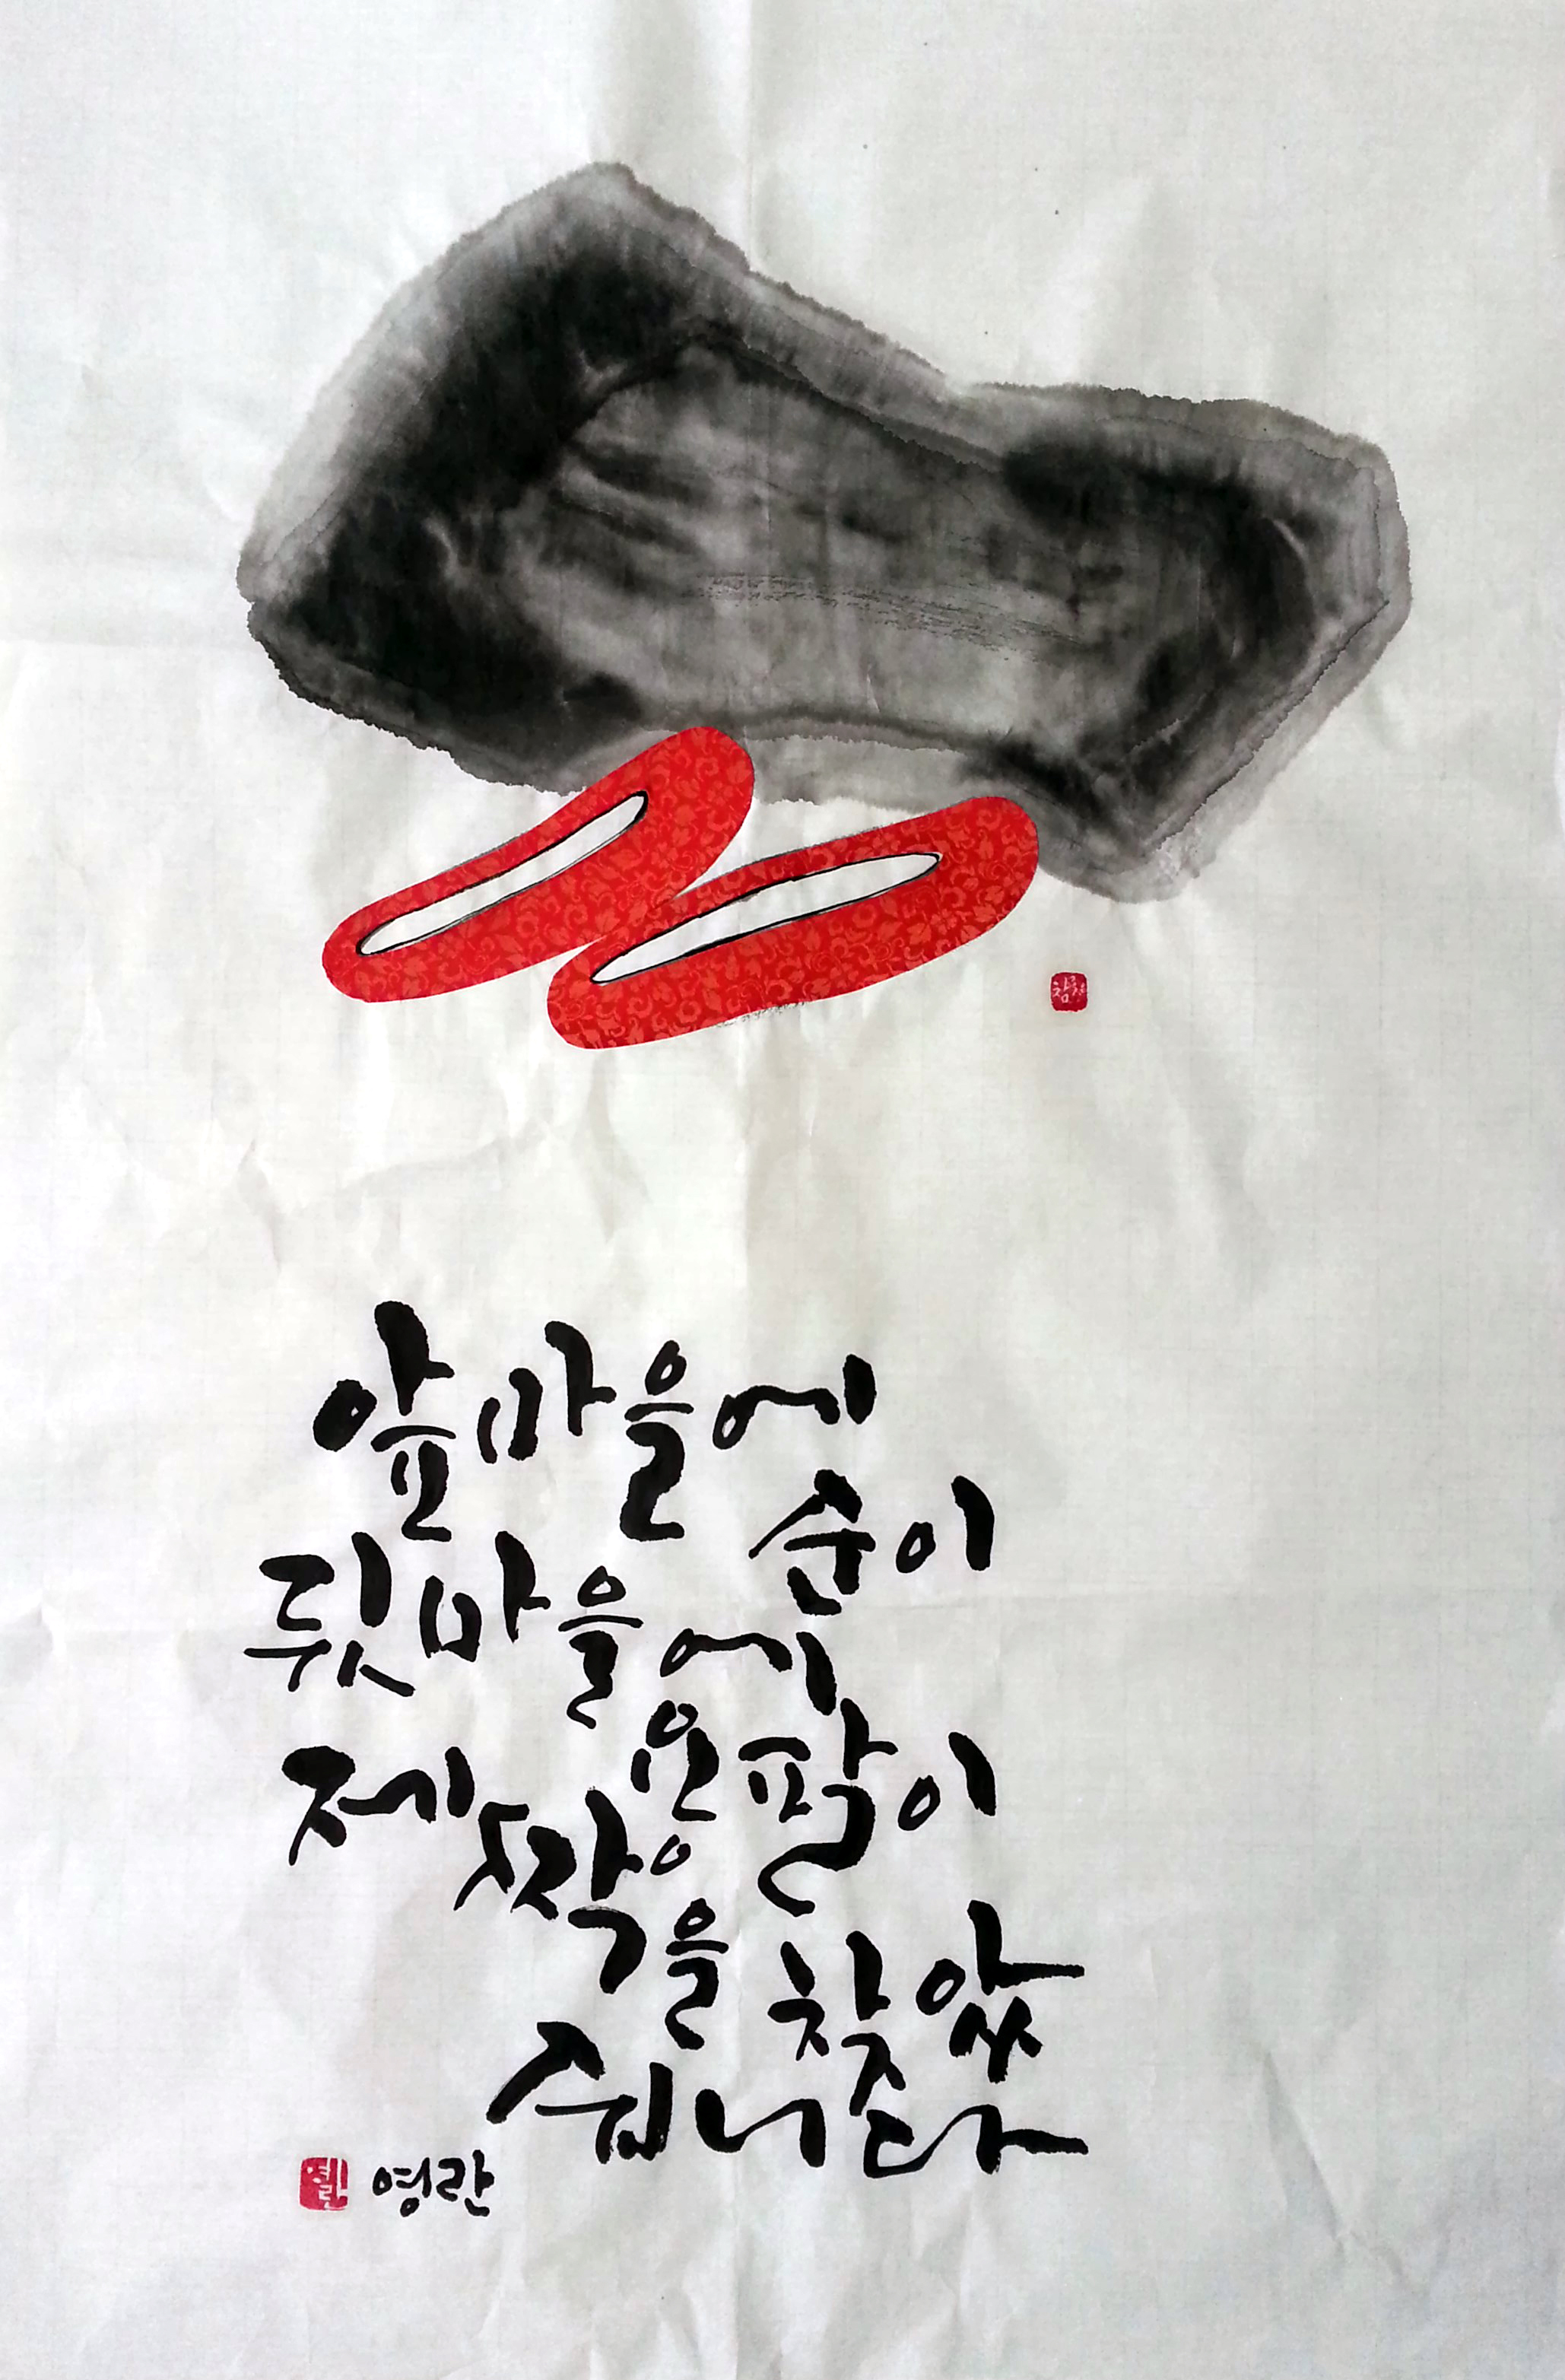 앞마을에
순이
뒷마을에
용팔이
제짝을 찾았
습니다
영란